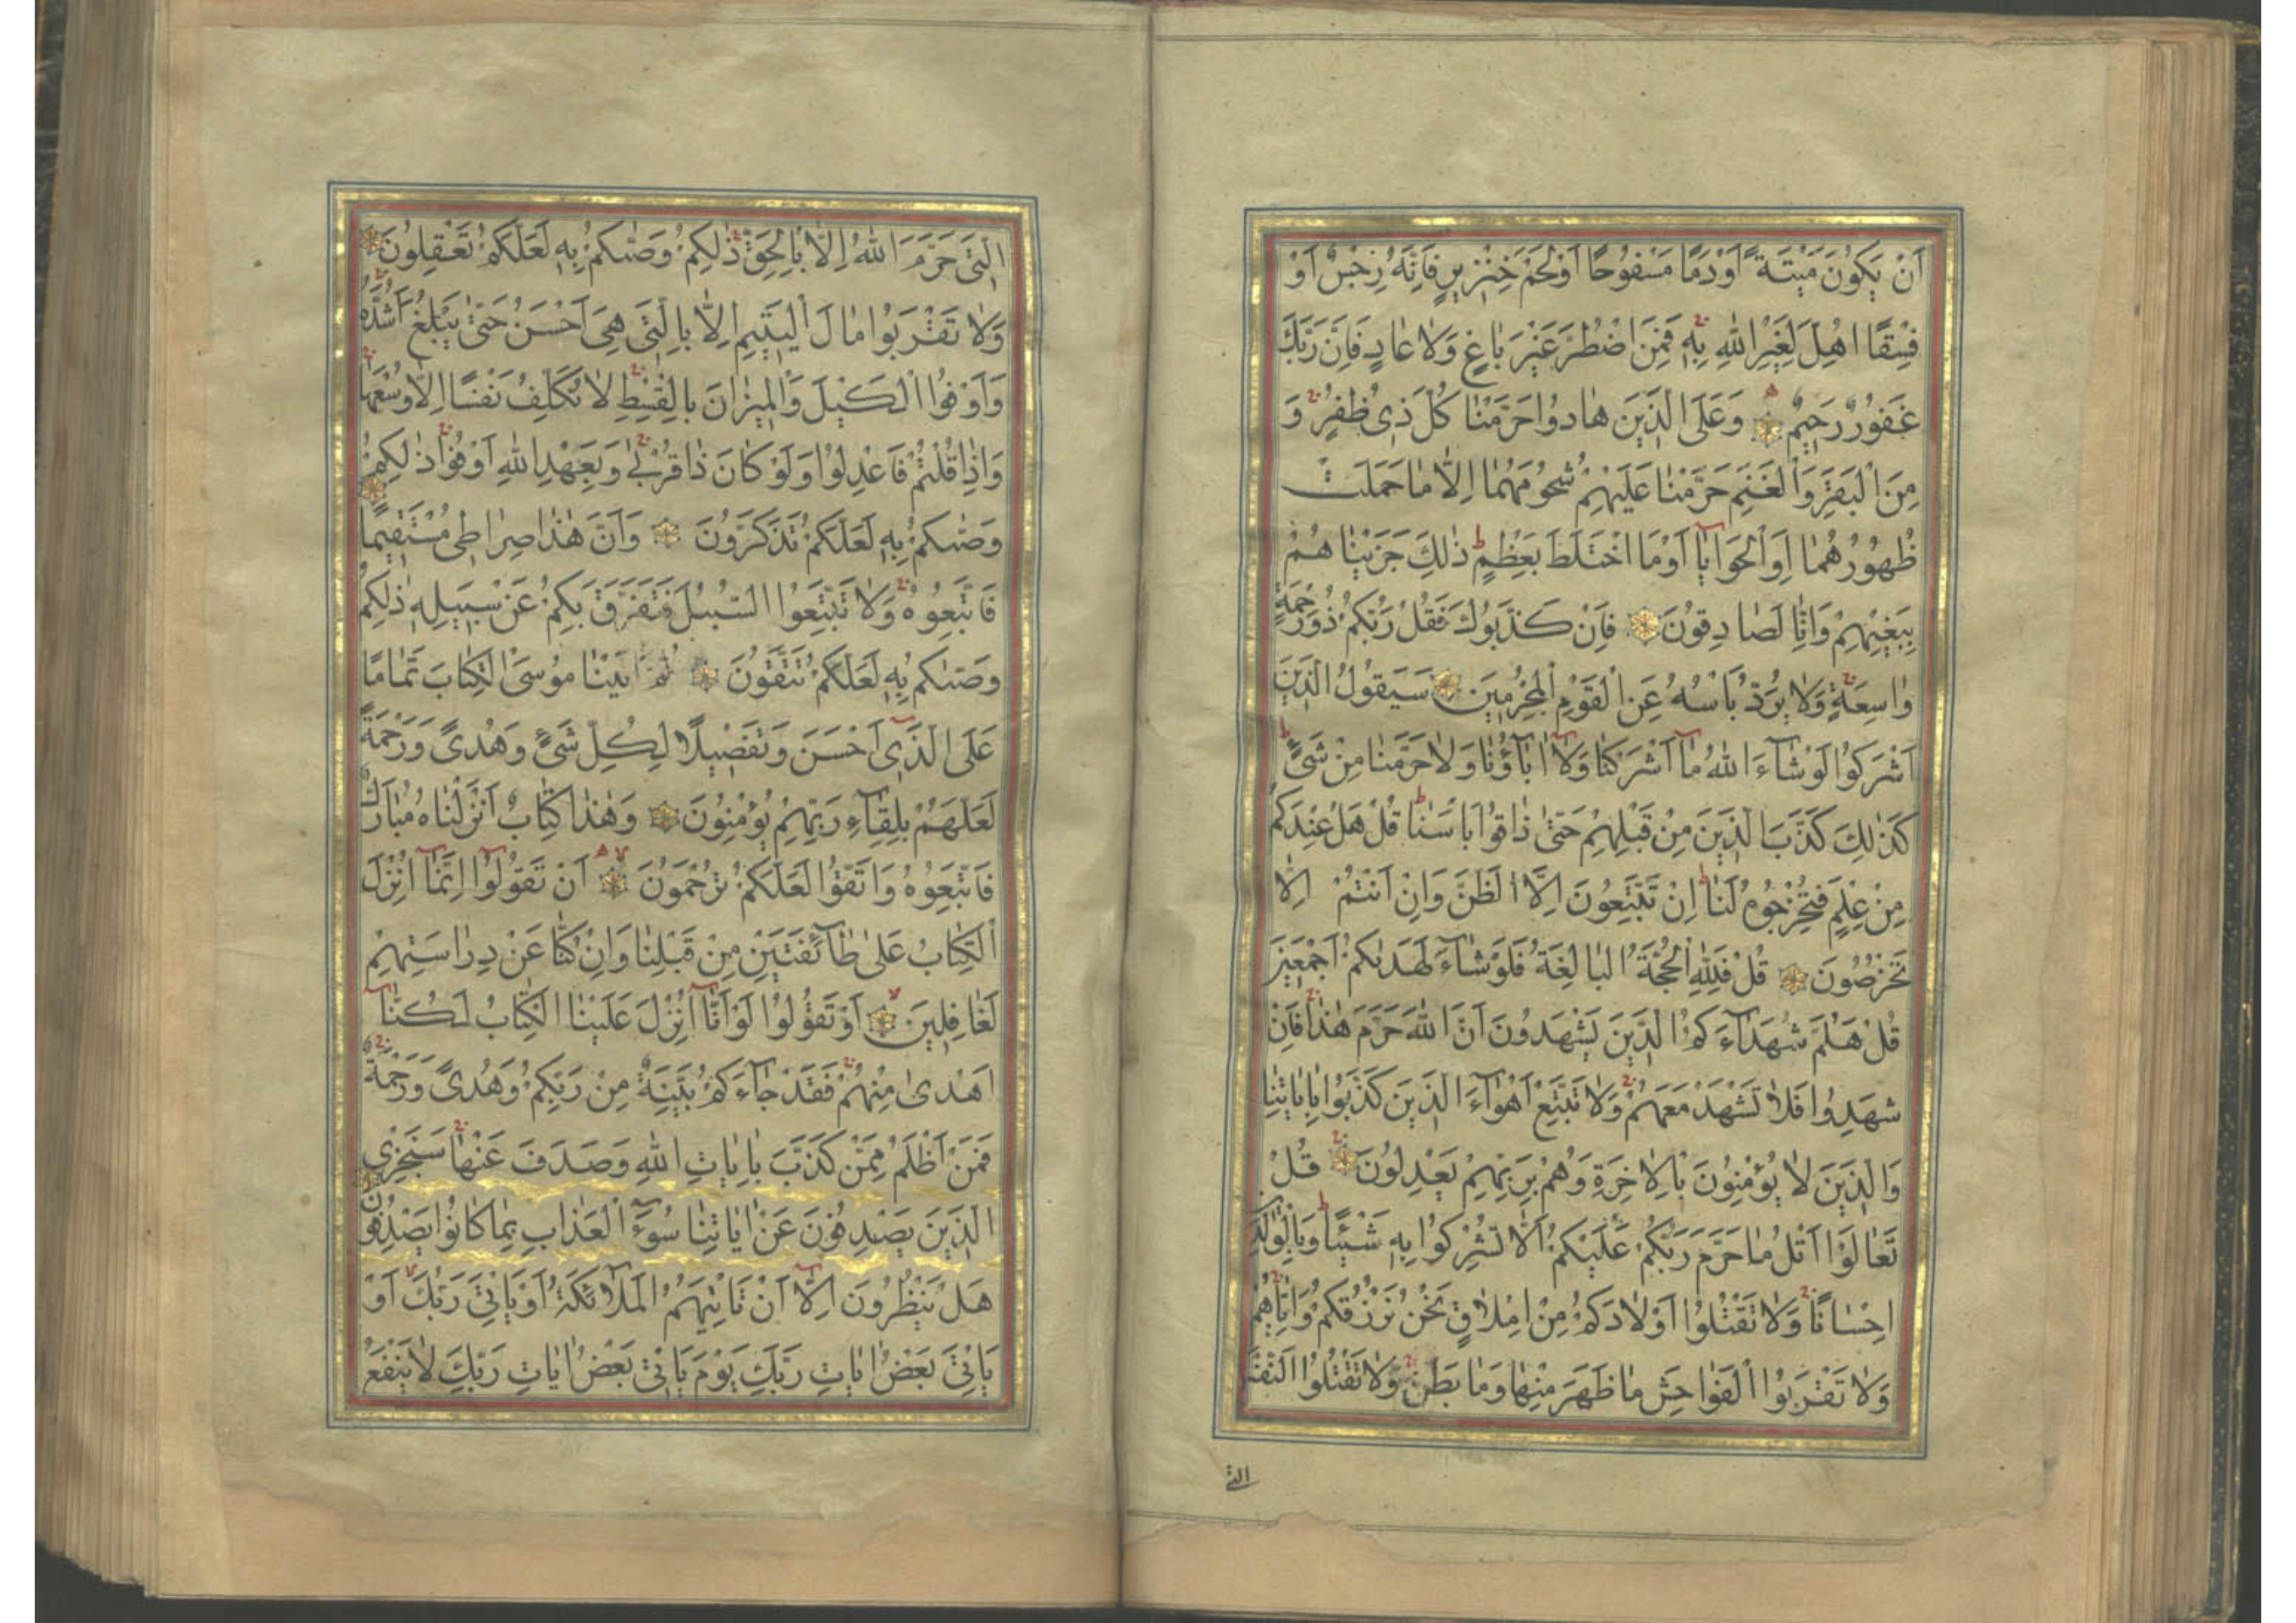 اَنْ يَكُونَ مَيْتَةً اَوْدَمًا مَسْفُوحًا اَوْلَحْمَ خِنْزِيرٍ فَاِنَّهُ رِجْسٌ اَوْ
فِسْقًا اُهِلَّ لِغَيْرِ اللّٰهِ بِهٖ فَمَنِ اضْطُرَّ غَيْرَ بَاغٍ وَلَا عَادٍ فَاِنَّ رَبَّكَ
غَفُورٌ رَحِيمٌ وَعَلَى الَّذِينَ هَادُوا حَرَّمْنَا كُلَّ ذِى ظُفُرٍ وَ
مِنَ الْبَقَرِ وَالْغَنَمِ حَرَّمْنَا عَلَيْهِمْ شُحُومَهُمَا اِلَّا مَا حَمَلَتْ
ظُهُورُهُمَا اَوِ الْحَوَايَا اَوْ مَا اخْتَلَطَ بِعَظْمٍ ذٰلِكَ جَزَيْنَاهُمْ
بِبَغْيِهِمْ وَاِنَّا لَصَادِقُونَ فَاِنْ كَذَّبُوكَ فَقُلْ رَبُّكُمْ ذُو رَحْمَةٍ
وَاسِعَةٍ وَلَا يُرَدُّ بَاْسُهُ عَنِ الْقَوْمِ الْمُجْرِمِينَ سَيَقُولُ الَّذِينَ
اَشْرَكُوا لَوْ شَآءَ اللّٰهُ مَآ اَشْرَكْنَا وَلَآ اٰبَآؤُنَا وَلَا حَرَّمْنَا مِنْ شَىْءٍ
كَذٰلِكَ كَذَّبَ الَّذِينَ مِنْ قَبْلِهِمْ حَتّٰى ذَاقُوا بَاْسَنَا قُلْ هَلْ عِنْدَكُمْ
مِنْ عِلْمٍ فَتُخْرِجُوهُ لَنَا اِنْ تَتَّبِعُونَ اِلَّا الظَّنَّ وَاِنْ اَنْتُمْ اِلَّا
تَخْرُصُونَ قُلْ فَلِلّٰهِ الْحُجَّةُ الْبَالِغَةُ فَلَوْ شَآءَ لَهَدٰيكُمْ اَجْمَعِينَ
قُلْ هَلُمَّ شُهَدَآءَكُمُ الَّذِينَ يَشْهَدُونَ اَنَّ اللّٰهَ حَرَّمَ هٰذَا فَاِنْ
شَهِدُوا فَلَا تَشْهَدْ مَعَهُمْ وَلَا تَتَّبِعْ اَهْوَآءَ الَّذِينَ كَذَّبُوا بِاٰيَاتِنَا
وَالَّذِينَ لَا يُؤْمِنُونَ بِالْاٰخِرَةِ وَهُمْ بِرَبِّهِمْ يَعْدِلُونَ قُلْ
تَعَالَوْا اَتْلُ مَا حَرَّمَ رَبُّكُمْ عَلَيْكُمْ اَلَّا تُشْرِكُوا بِهٖ شَيْئًا وَبِالْوَالِدَيْنِ
اِحْسَانًا وَلَا تَقْتُلُوا اَوْلَادَكُمْ مِنْ اِمْلَاقٍ نَحْنُ نَرْزُقُكُمْ وَاِيَّاهُمْ
وَلَا تَقْرَبُوا الْفَوَاحِشَ مَا ظَهَرَ مِنْهَا وَمَا بَطَنَ وَلَا تَقْتُلُوا النَّفْسَ
التى
الَّتِى حَرَّمَ اللّٰهُ اِلَّا بِالْحَقِّ ذٰلِكُمْ وَصّٰيكُمْ بِهٖ لَعَلَّكُمْ تَعْقِلُونَ
وَلَا تَقْرَبُوا مَالَ الْيَتِيمِ اِلَّا بِالَّتِى هِىَ اَحْسَنُ حَتّٰى يَبْلُغَ اَشُدَّهُ
وَاَوْفُوا الْكَيْلَ وَالْمِيزَانَ بِالْقِسْطِ لَا نُكَلِّفُ نَفْسًا اِلَّا وُسْعَهَا
وَاِذَا قُلْتُمْ فَاعْدِلُوا وَلَوْ كَانَ ذَا قُرْبٰى وَبِعَهْدِ اللّٰهِ اَوْفُوا ذٰلِكُمْ
وَصّٰيكُمْ بِهٖ لَعَلَّكُمْ تَذَكَّرُونَ وَاَنَّ هٰذَا صِرَاطِى مُسْتَقِيمًا
فَاتَّبِعُوهُ وَلَا تَتَّبِعُوا السُّبُلَ فَتَفَرَّقَ بِكُمْ عَنْ سَبِيلِهٖ ذٰلِكُمْ
وَصّٰيكُمْ بِهٖ لَعَلَّكُمْ تَتَّقُونَ ثُمَّ اٰتَيْنَا مُوسَى الْكِتَابَ تَمَامًا
عَلَى الَّذِىٓ اَحْسَنَ وَتَفْصِيلًا لِكُلِّ شَىْءٍ وَهُدًى وَرَحْمَةً
لَعَلَّهُمْ بِلِقَآءِ رَبِّهِمْ يُؤْمِنُونَ وَهٰذَا كِتَابٌ اَنْزَلْنَاهُ مُبَارَكٌ
فَاتَّبِعُوهُ وَاتَّقُوا لَعَلَّكُمْ تُرْحَمُونَ اَنْ تَقُولُوٓا اِنَّمَآ اُنْزِلَ
الْكِتَابُ عَلٰى طَآئِفَتَيْنِ مِنْ قَبْلِنَا وَاِنْ كُنَّا عَنْ دِرَاسَتِهِمْ
لَغَافِلِينَ اَوْ تَقُولُوا لَوْ اَنَّآ اُنْزِلَ عَلَيْنَا الْكِتَابُ لَكُنَّآ
اَهْدٰى مِنْهُمْ فَقَدْ جَآءَكُمْ بَيِّنَةٌ مِنْ رَبِّكُمْ وَهُدًى وَرَحْمَةٌ
فَمَنْ اَظْلَمُ مِمَّنْ كَذَّبَ بِاٰيَاتِ اللّٰهِ وَصَدَفَ عَنْهَا سَنَجْزِى
الَّذِينَ يَصْدِفُونَ عَنْ اٰيَاتِنَا سُوٓءَ الْعَذَابِ بِمَا كَانُوا يَصْدِفُونَ
هَلْ يَنْظُرُونَ اِلَّآ اَنْ تَاْتِيَهُمُ الْمَلٰٓائِكَةُ اَوْ يَاْتِىَ رَبُّكَ اَوْ
يَاْتِىَ بَعْضُ اٰيَاتِ رَبِّكَ يَوْمَ يَاْتِى بَعْضُ اٰيَاتِ رَبِّكَ لَا يَنْفَعُ